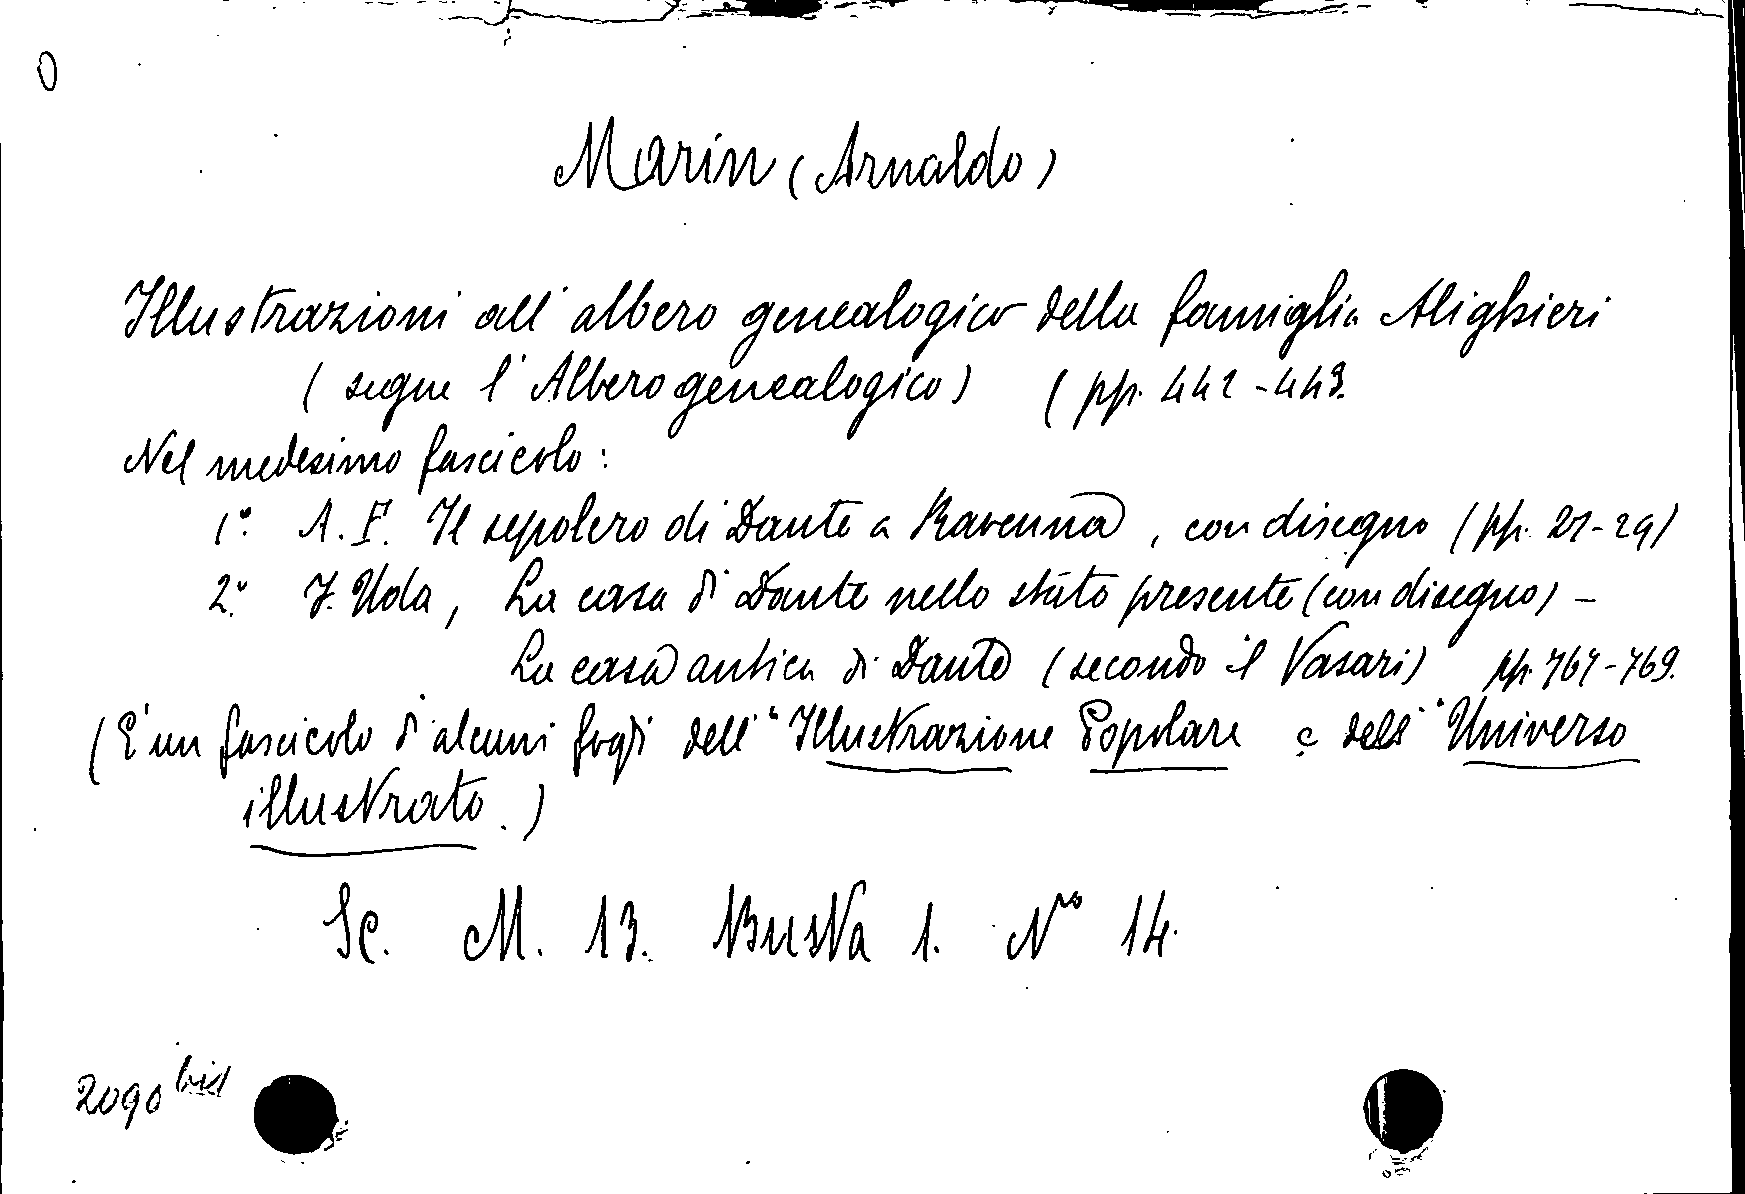 0
Marin (Arnaldo)
Illustrazioni all' albero genealogico della famiglia Alighieri
(segue l' Albero genealogico) (pp. 442-443.
Nel medesimo fascicolo:
1º. A. F. Il sepolcro di Dante a Ravenna, con disegno (pp. 27-29)
2º. J. Nola, La casa di Dante nello stato presente (con disegno) -
La casa antica di Dante (secondo il Vasari) pp. 767-769.
(E' un fascicolo d' alcuni fogli dell' "Illustrazione Popolare e dell' "Universo
illustrato.)
Sc. M. 13. Busta 1. Nro 14.
2090 bis